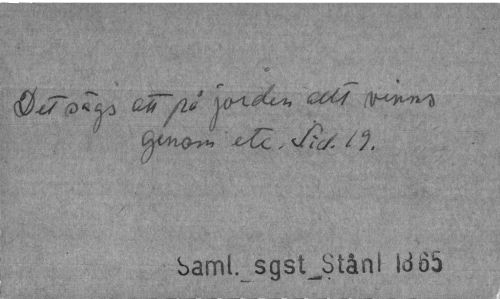 Det sägs att på jorden allt vinns
genom etc. Sid. 19.
Saml. sgst Stånl 1865